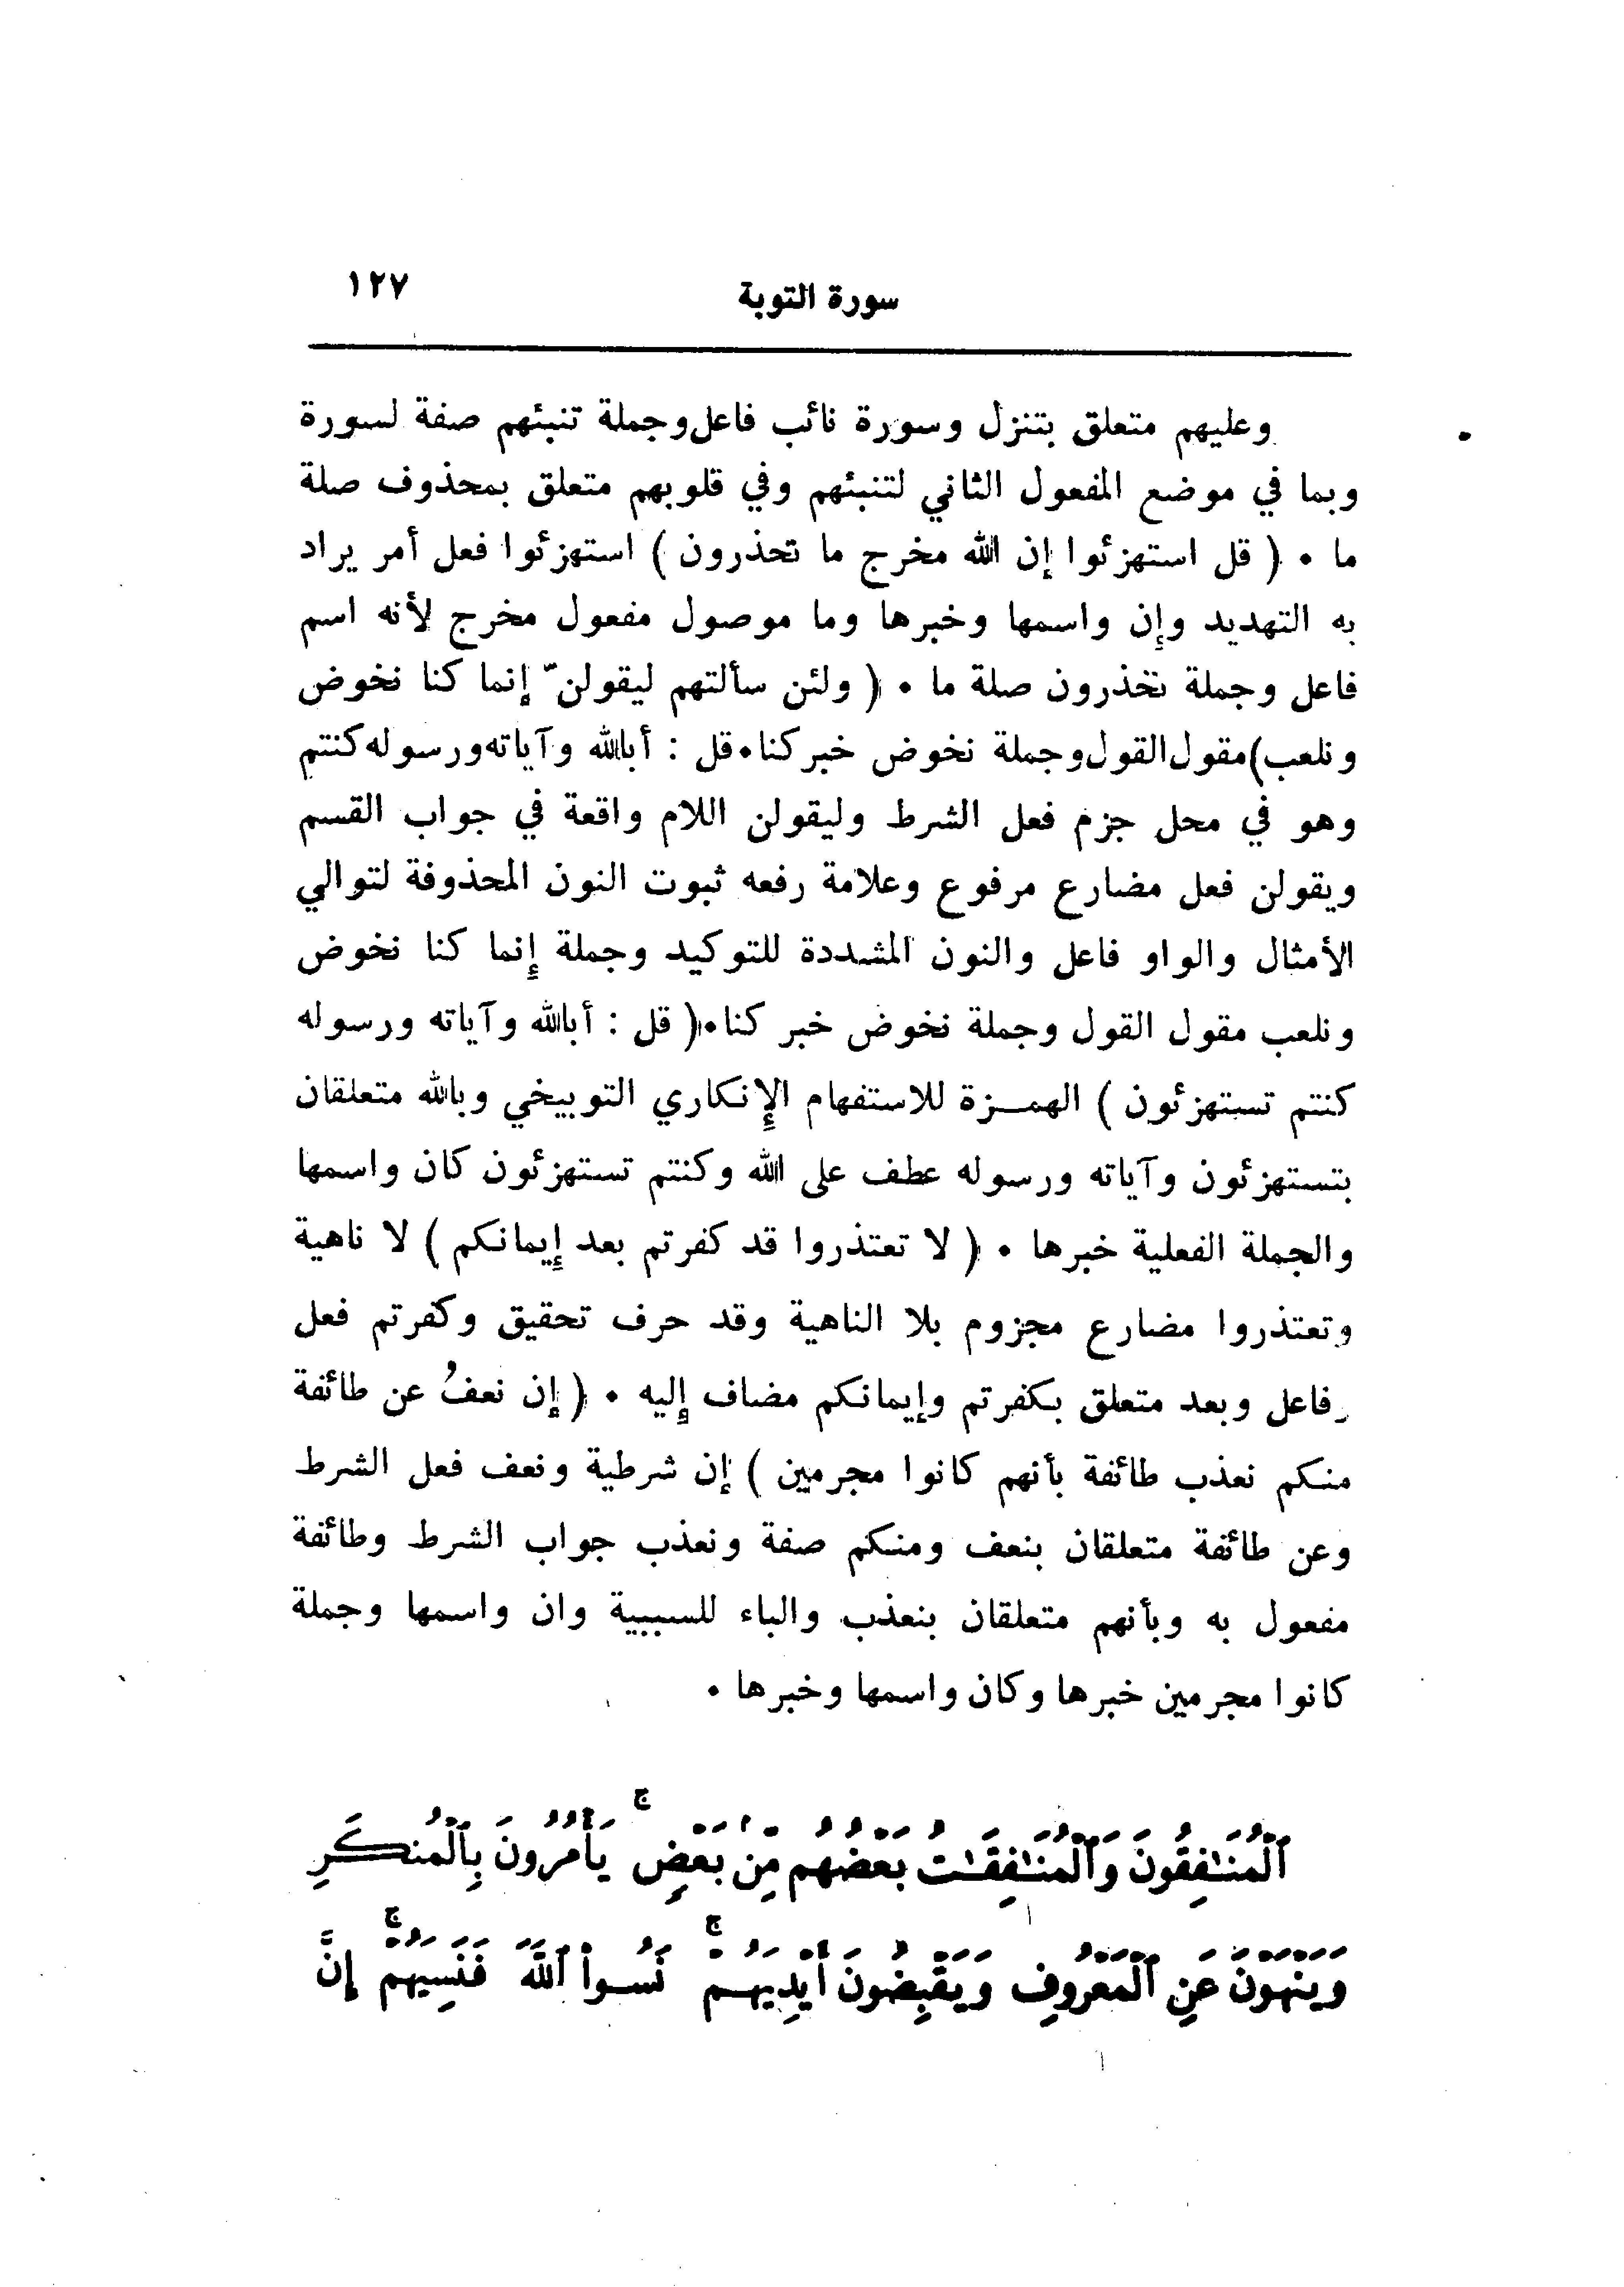 سورة التوبة ١٢٧
وعليهم متعلق بتنزل وسورة نائب فاعل وجملة تنبئهم صفة لسورة
وبما في موضع المفعول الثاني لتنبئهم وفي قلوبهم متعلق بمحذوف صلة
ما • ( قل استهزئوا إن الله مخرج ما تحذرون ) استهزئوا فعل أمر يراد
به التهديد وإن واسمها وخبرها وما موصول مفعول مخرج لأنه اسم
فاعل وجملة تحذرون صلة ما • ( ولئن سألتهم ليقولنّ إنما كنا نخوض
ونلعب)مقول القول وجملة نخوض خبر كنا•قل : أبالله وآياته ورسوله كنتم
وهو في محل جزم فعل الشرط وليقولن اللام واقعة في جواب القسم
ويقولن فعل مضارع مرفوع وعلامة رفعه ثبوت النون المحذوفة لتوالي
الأمثال والواو فاعل والنون المشددة للتوكيد وجملة إنما كنا نخوض
ونلعب مقول القول وجملة نخوض خبر كنا•( قل : أبالله وآياته ورسوله
كنتم تستهزئون ) الهمزة للاستفهام الإنكاري التوبيخي وبالله متعلقان
بتستهزئون وآياته ورسوله عطف على الله وكنتم تستهزئون كان واسمها
والجملة الفعلية خبرها • ( لا تعتذروا قد كفرتم بعد إيمانكم ) لا ناهية
وتعتذروا مضارع مجزوم بلا الناهية وقد حرف تحقيق وكفرتم فعل
وفاعل وبعد متعلق بكفرتم وإيمانكم مضاف إليه • ( إن نعفُ عن طائفة
منكم نعذب طائفة بأنهم كانوا مجرمين ) إن شرطية ونعف فعل الشرط
وعن طائفة متعلقان بنعف ومنكم صفة ونعذب جواب الشرط وطائفة
مفعول به وبأنهم متعلقان بنعذب والباء للسببية وان واسمها وجملة
كانوا مجرمين خبرها وكان واسمها وخبرها •
ٱلْمُنَٰفِقُونَ وَٱلْمُنَٰفِقَٰتُ بَعْضُهُم مِّنۢ بَعْضٍ ۚ يَأْمُرُونَ بِٱلْمُنكَرِ
وَيَنْهَوْنَ عَنِ ٱلْمَعْرُوفِ وَيَقْبِضُونَ أَيْدِيَهُمْ ۚ نَسُوا۟ ٱللَّهَ فَنَسِيَهُمْ ۚ إِنَّ